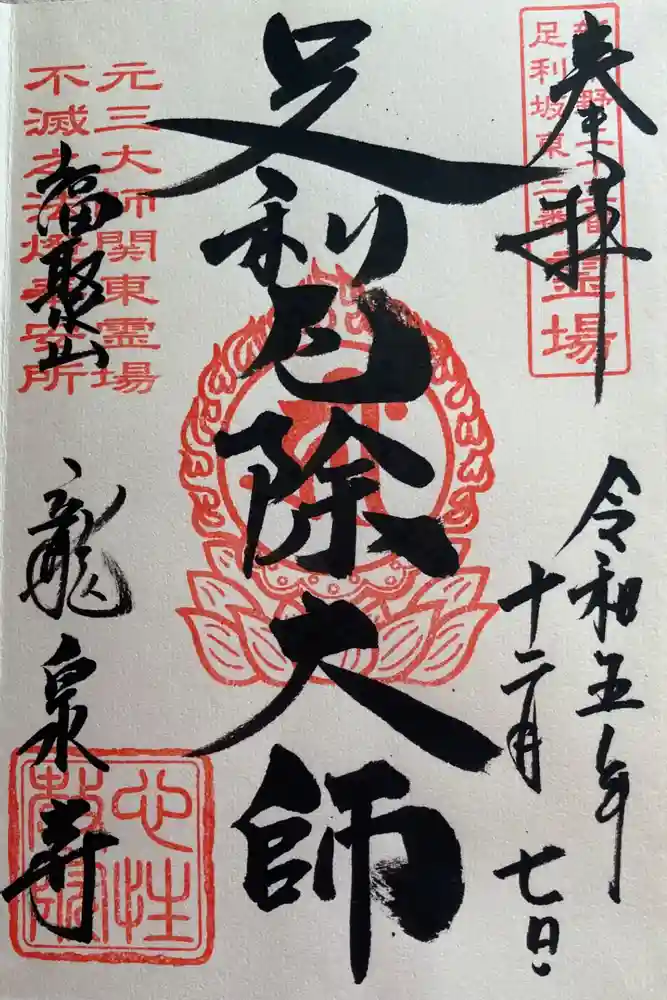 奉拝
足利坂東三番
霊場
令和五年
十二月七日
足利厄除大師
元三大師関東霊場
不滅之法燈奉安所
福聚山
龍泉寺